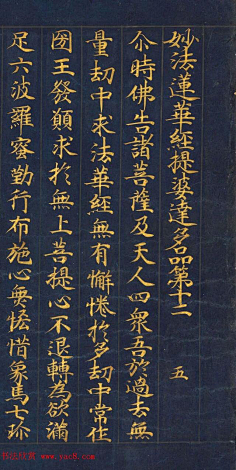 妙法蓮華經提婆達多品第十二 五
尒時佛告諸菩薩及天人四衆吾於過去無
量劫中求法華經無有懈惓於多劫中常作
國王發願求於無上菩提心不退轉為欲滿
足六波羅蜜勤行布施心無悋惜象馬七珎